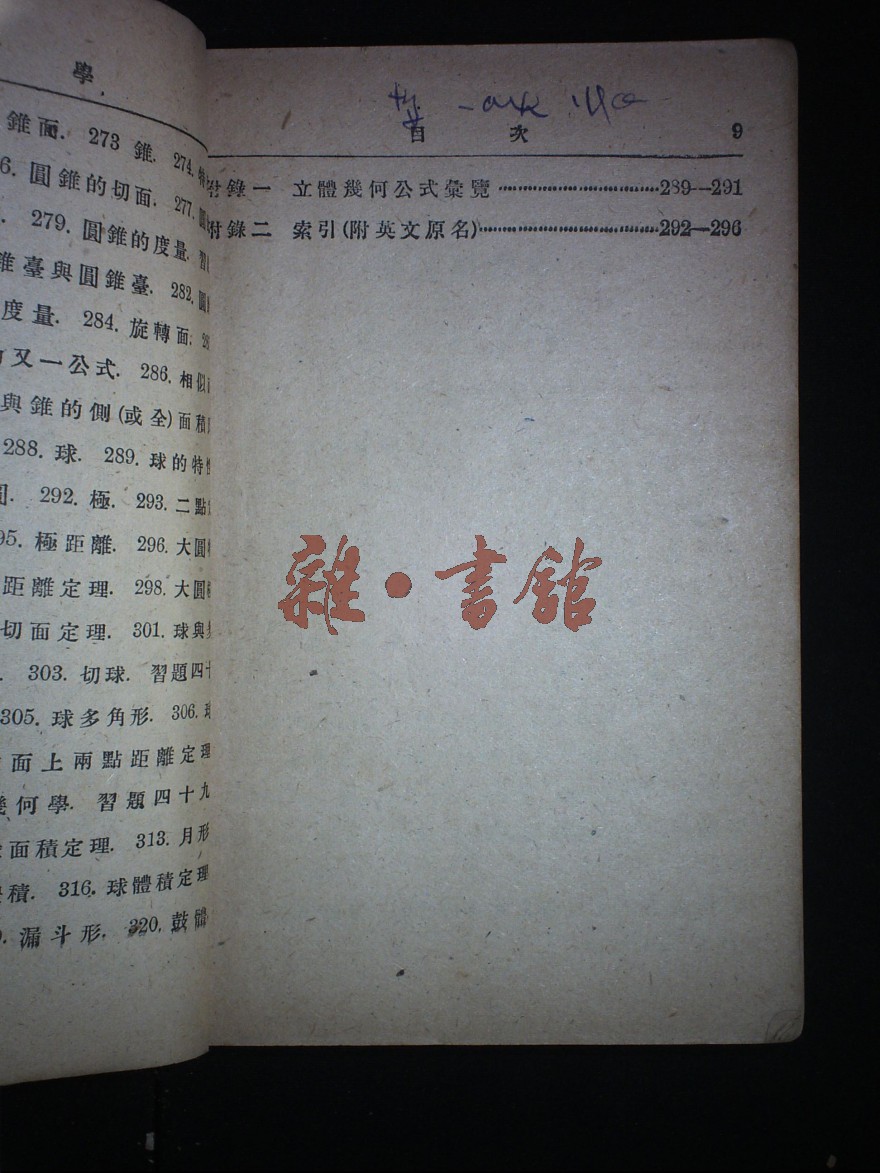 學
錐面. 273 錐. 274.
6. 圓錐的切面. 277.
279. 圓錐的度量.
錐臺與圓錐臺. 282.
度量. 284. 旋轉面.
又一公式. 286. 相似
與錐的側(或全)面積
288. 球. 289. 球的特性
292. 極. 293. 二點
95. 極距離. 296. 大圓
距離定理. 298. 大圓
切面定理. 301. 球與
303. 切球. 習題四十
305. 球多角形. 306. 球
面上兩點距離定理
幾何學. 習題四十九
面積定理. 313. 月形
積. 316. 球體積定理
漏斗形. 320. 鼓體
目 次 9
附錄一 立體幾何公式彙覽 289—291
附錄二 索引(附英文原名) 292—296
雜·書館